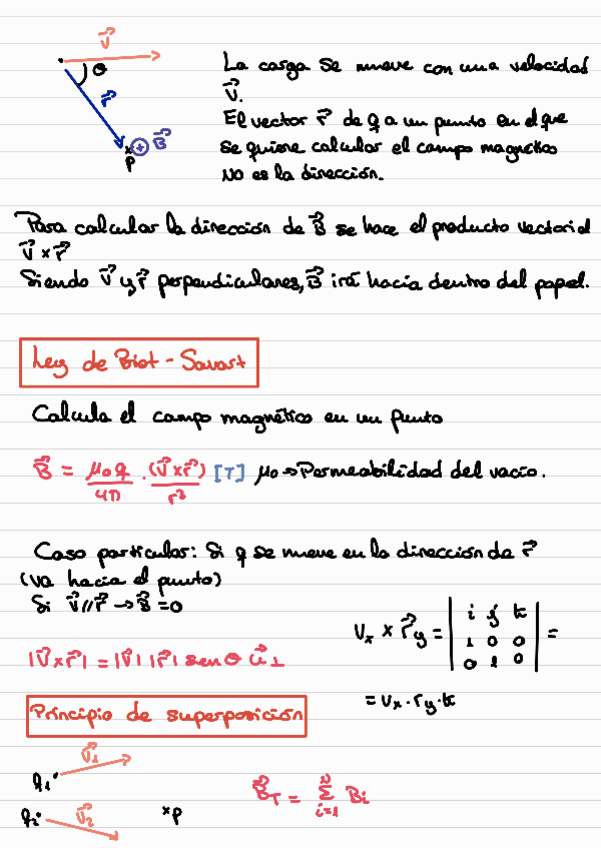 V⃗
La carga se mueve con una velocidad
θ
V⃗.
r⃗
El vector r⃗ de q a un punto en el que
B⃗
se quiere calcular el campo magnético
P
NO es la dirección.
Para calcular la dirección de B⃗ se hace el producto vectorial
V⃗ x r⃗
Siendo V⃗ y r⃗ perpendiculares, B⃗ irá hacia dentro del papel.
Ley de Biot - Savart
Calcula el campo magnético en un punto
B⃗ = μ₀q/4π · (V⃗ x r⃗)/r³ [T] μ₀ → Permeabilidad del vacío.
Caso particular: Si q se mueve en la dirección de r⃗
(va hacia el punto)
Si V⃗ // r⃗ → B⃗ = 0
Vx x r⃗y = | i j k | =
| 1 0 0 |
| 0 1 0 |
|V⃗ x r⃗| = |V⃗| |r⃗| sen θ u⃗⊥
= Vx · ry · k
Principio de superposición
q₁ V⃗₁
B⃗T = Σ Bi
N
i=1
q₂ V⃗₂ xP